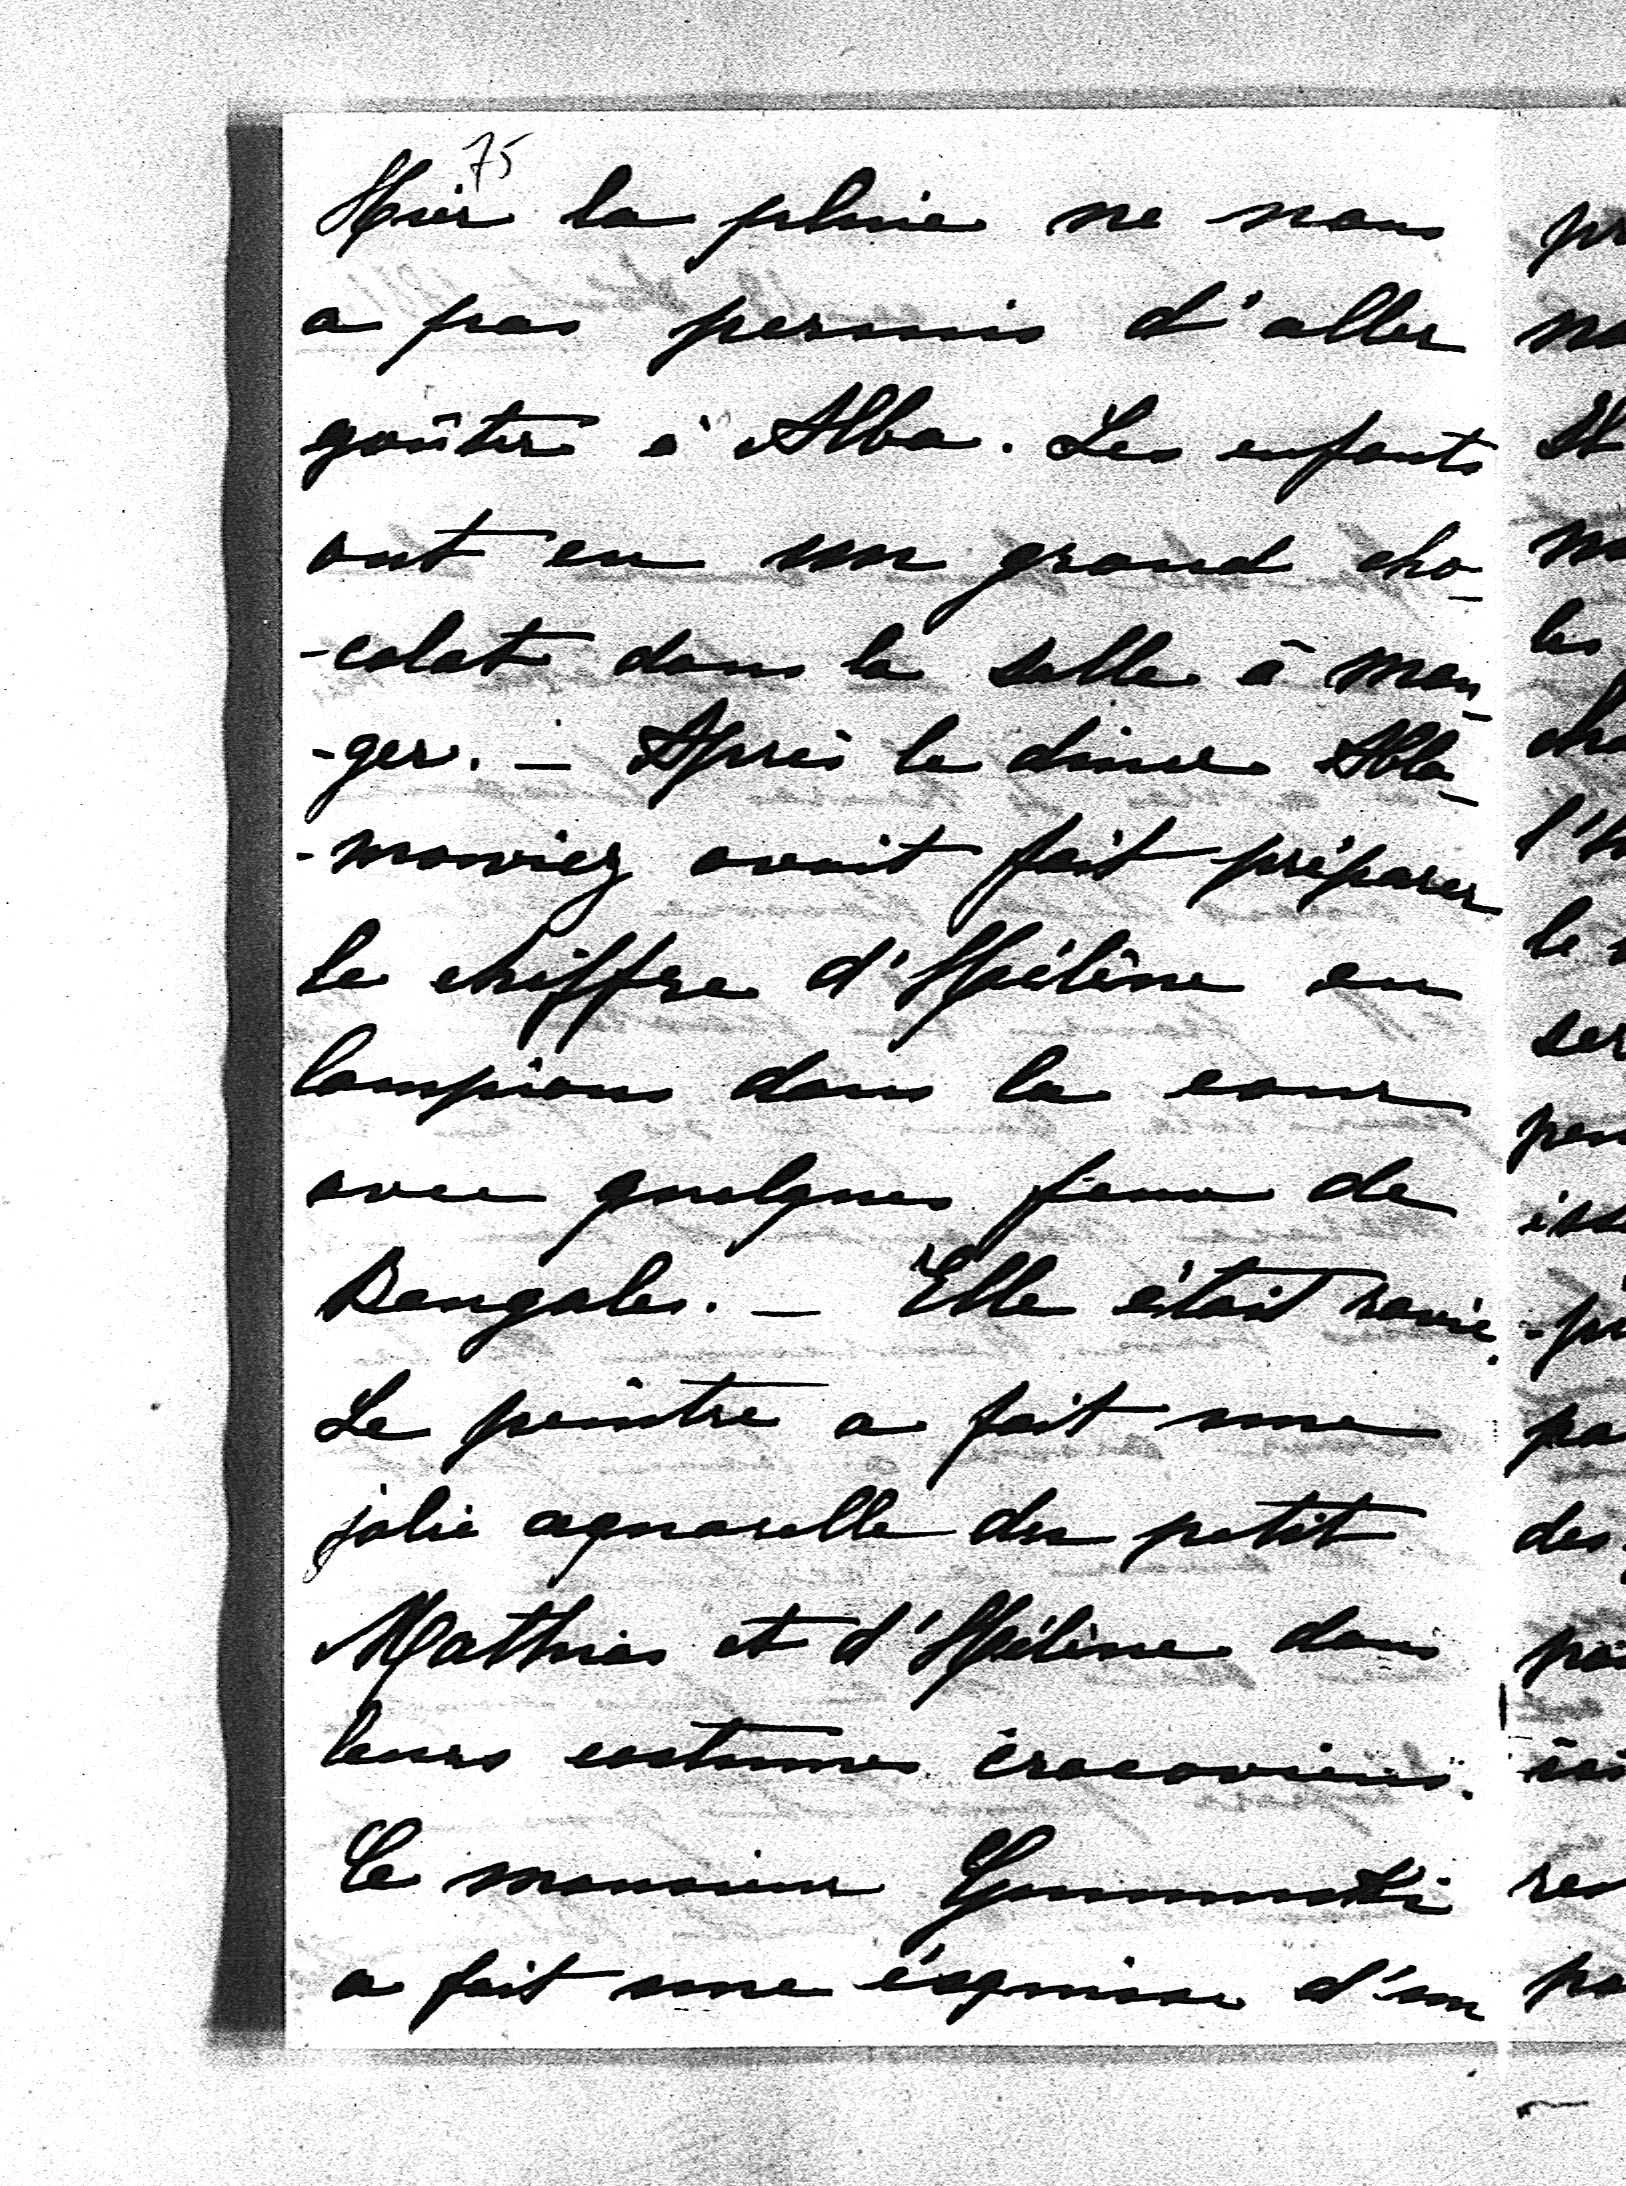 75
Hier la pluie ne nous
a pas permis d'aller
goûter à Alba. Les enfants
ont eu un grand cho-
-colat dans la salle à man-
-ger. — Après le diner Abla-
-mowicz avait fait préparer
le chiffre d'Hélène en
lampions dans la cour
avec quelques feux de
Bengales. — Elle était ravie.
Le peintre a fait une
jolie aquarelle du petit
Mathias et d'Hélène dans
leurs costumes cracoviens.
Ce monsieur
a fait une ésquisse d'un